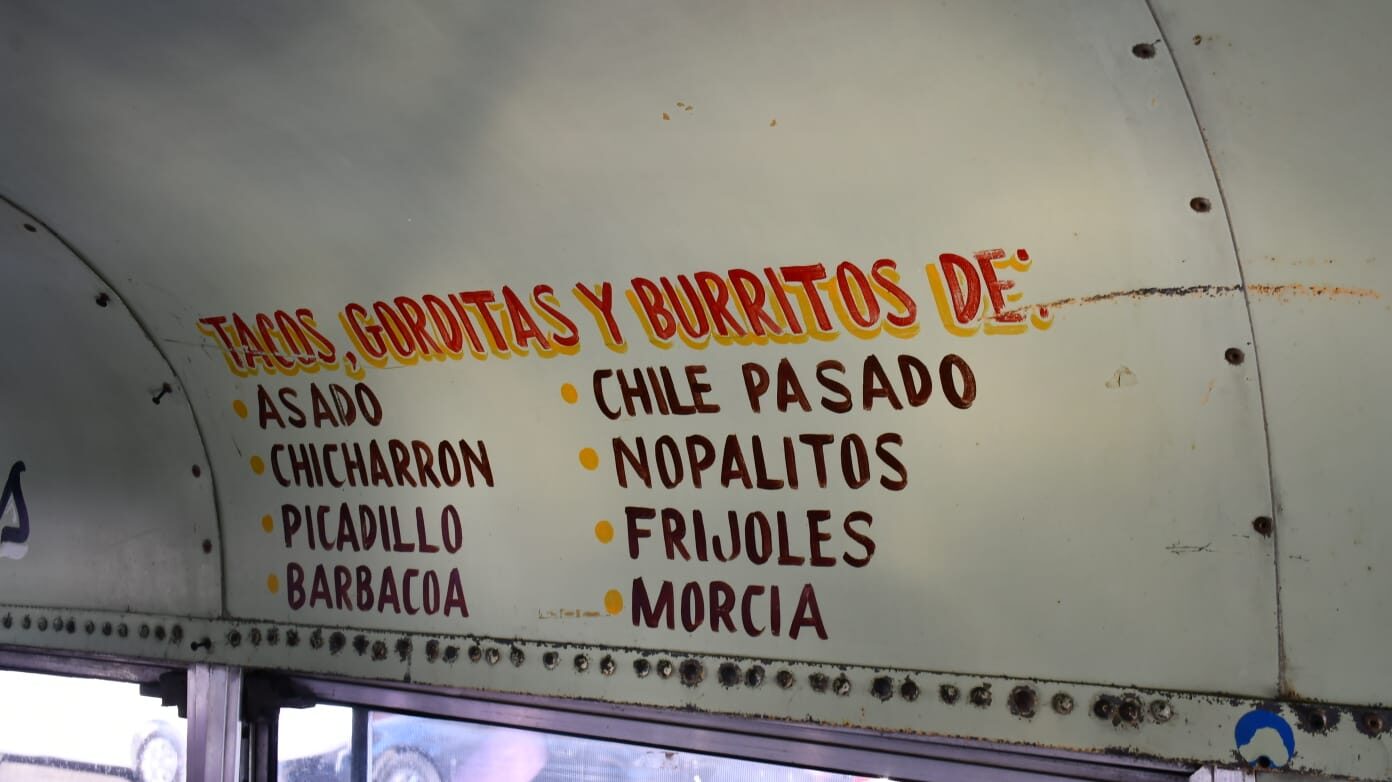 TACOS, GORDITAS Y BURRITOS DE:
• ASADO
• CHICHARRON
• PICADILLO
• BARBACOA
• CHILE PASADO
• NOPALITOS
• FRIJOLES
• MORCIA